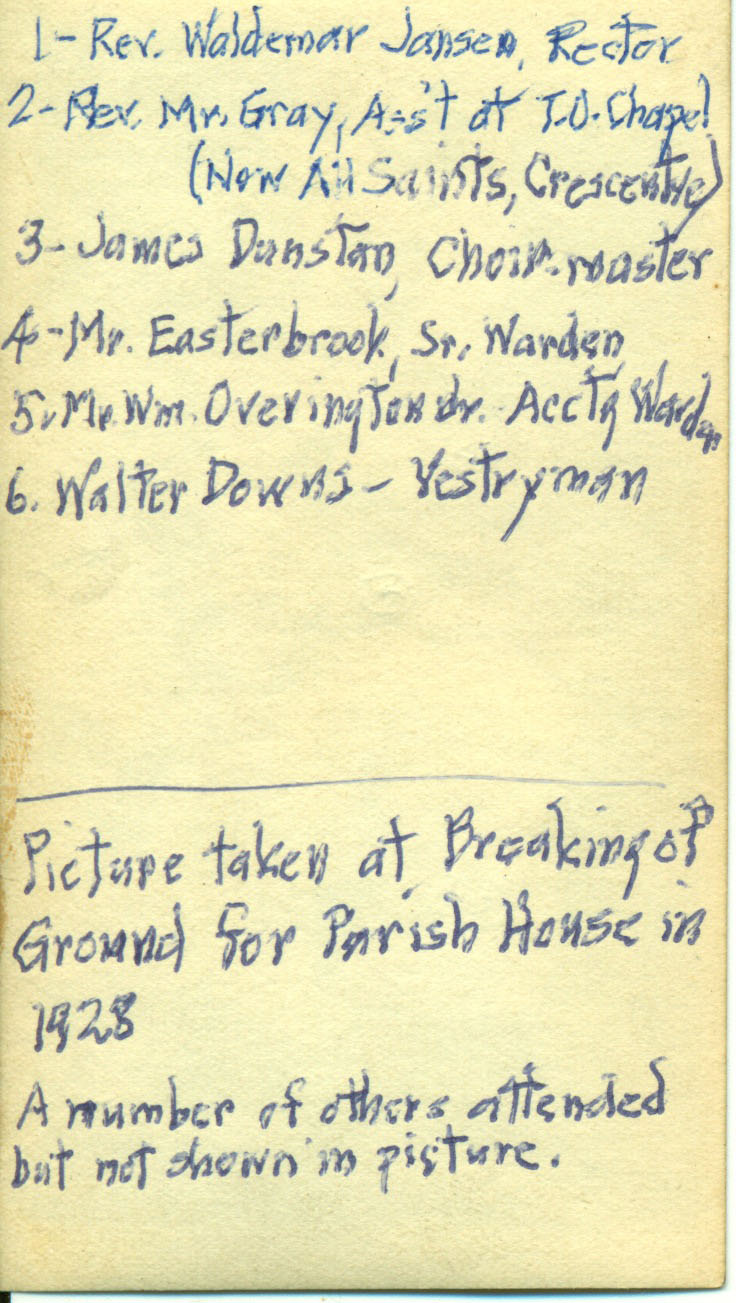 1- Rev. Waldemar Jansen, Rector
2- Rev. Mr. Gray, Ass't at T.O. Chapel
(Now All Saints, Crescentville)
3- James Dunstan, Choir-master
4-Mr. Easterbrook, Sr. Warden
5. Mr. Wm. Overington Jr. Acctg Warden
6. Walter Downs - Vestryman
Picture taken at Breaking of
Ground for Parish House in
1928
A number of others attended
but not shown in picture.